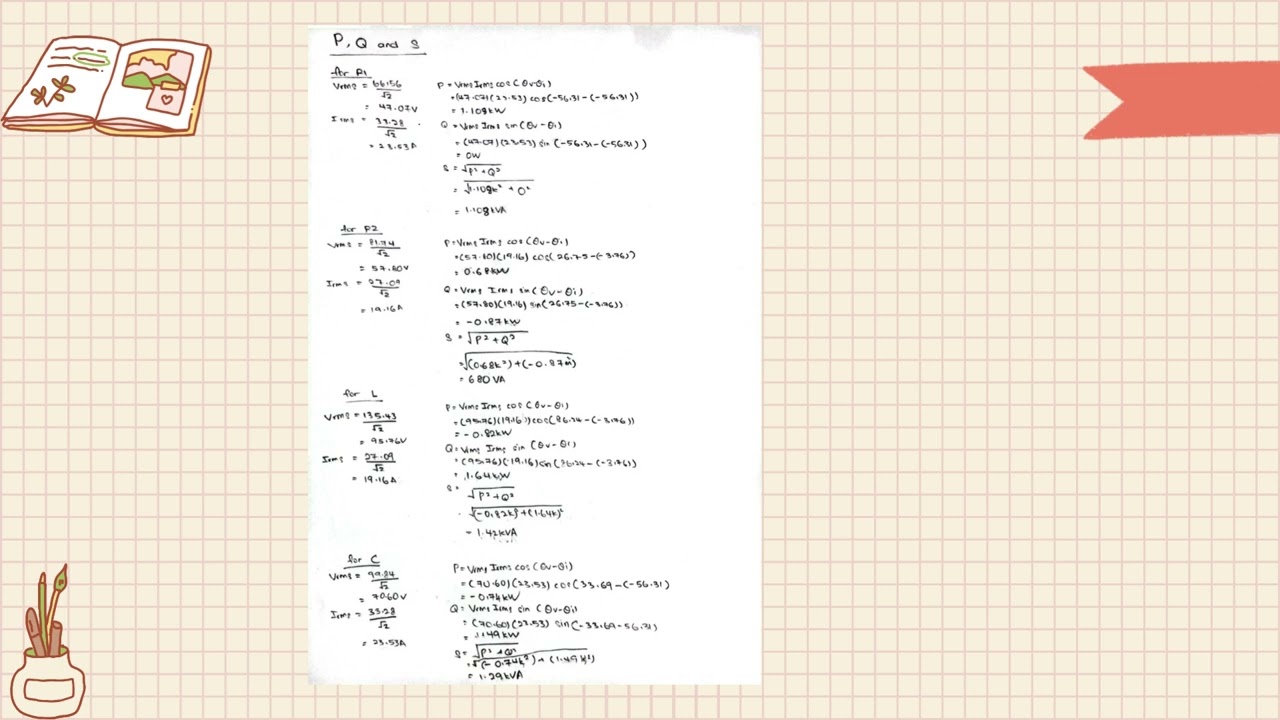 P, Q and S
for R1
Vrms = 66.56/√2
= 47.07V
Irms = 33.28/√2
= 23.53A
P = Vrms Irms cos(θv-θi)
= (47.07)(23.53) cos(-56.31-(-56.31))
= 1.108kW
Q = Vrms Irms sin(θv-θi)
= (47.07)(23.53) sin(-56.31-(-56.31))
= 0W
S = √P²+Q²
= √1.108k² + 0²
= 1.108kVA
for R2
Vrms = 81.74/√2
= 57.80V
Irms = 27.09/√2
= 19.16A
P = Vrms Irms cos(θv-θi)
= (57.80)(19.16) cos(26.75-(-3.76))
= 0.68kW
Q = Vrms Irms sin(θv-θi)
= (57.80)(19.16) sin(26.75-(-3.76))
= -0.87kW
S = √P²+Q²
= √(0.68k²)+(-0.87m)
= 680VA
for L
Vrms = 135.43/√2
= 95.76V
Irms = 27.09/√2
= 19.16A
P = Vrms Irms cos(θv-θi)
= (95.76)(19.16) cos(86.24-(-3.76))
= -0.82kW
Q = Vrms Irms sin(θv-θi)
= (95.76)(19.16) sin(86.24-(-3.76))
= 1.64kW
S = √P²+Q²
√(-0.82k)²+(1.64k)²
= 1.42kVA
for C
Vrms = 99.84/√2
= 70.60V
Irms = 33.28/√2
= 23.53A
P = Vrms Irms cos(θv-θi)
= (70.60)(23.53) cos(33.69-(-56.31)
= -0.74kW
Q = Vrms Irms sin(θv-θi)
= (70.60)(23.53) sin(-33.69-56.31)
= 1.49kW
S = √P²+Q²
= √(-0.74k²)+(1.49k²)
= 1.29kVA